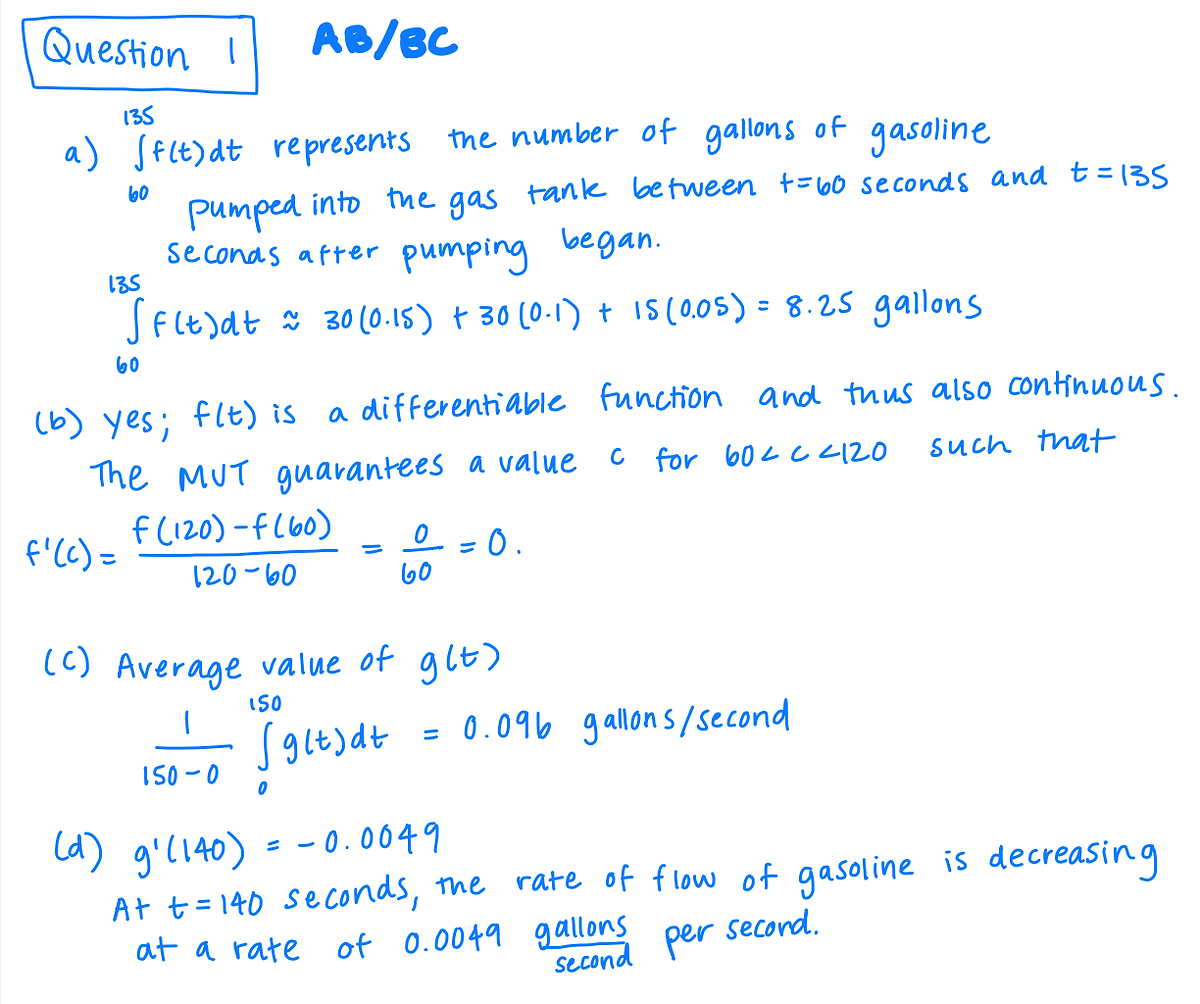 Question 1 AB/BC
a) ∫₆₀¹³⁵ f(t)dt represents the number of gallons of gasoline
pumped into the gas tank between t=60 seconds and t=135
seconds after pumping began.
∫₆₀¹³⁵ f(t)dt ≈ 30(0.15) + 30(0.1) + 15(0.05) = 8.25 gallons
(b) yes; f(t) is a differentiable function and thus also continuous.
The MVT guarantees a value c for 60<c<120 such that
f'(c) = (f(120)-f(60))/(120-60) = 0/60 = 0.
(c) Average value of g(t)
1/(150-0) ∫₀¹⁵⁰ g(t)dt = 0.096 gallons/second
(d) g'(140) = -0.0049
At t=140 seconds, the rate of flow of gasoline is decreasing
at a rate of 0.0049 gallons/second per second.